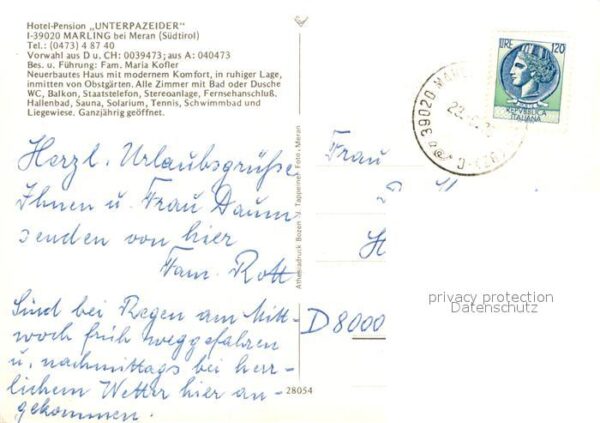 Hotel-Pension „UNTERPAZEIDER“
I-39020 MARLING bei Meran (Südtirol)
Tel.: (0473) 4 87 40
Vorwahl aus D u. CH: 0039473; aus A: 040473
Bes. u. Führung: Fam. Maria Kofler
Neuerbautes Haus mit modernem Komfort, in ruhiger Lage,
inmitten von Obstgärten. Alle Zimmer mit Bad oder Dusche
WC, Balkon, Staatstelefon, Stereoanlage, Fernsehanschluß.
Hallenbad, Sauna, Solarium, Tennis, Schwimmbad und
Liegewiese. Ganzjährig geöffnet.
Herzl. Urlaubsgrüße
Ihnen u. Frau Daum
senden von hier
Fam. Rott
Sind bei Regen am Mitt-
woch früh weggefahren
u. nachmittags bei herr-
lichem Wetter hier an-
gekommen.
Athesiadruck Bozen
Tappeiner Foto, Meran
28054
LIRE 120
REPVBBLICA
ITALIANA
39020
Frau
D 8000
privacy protection
Datenschutz